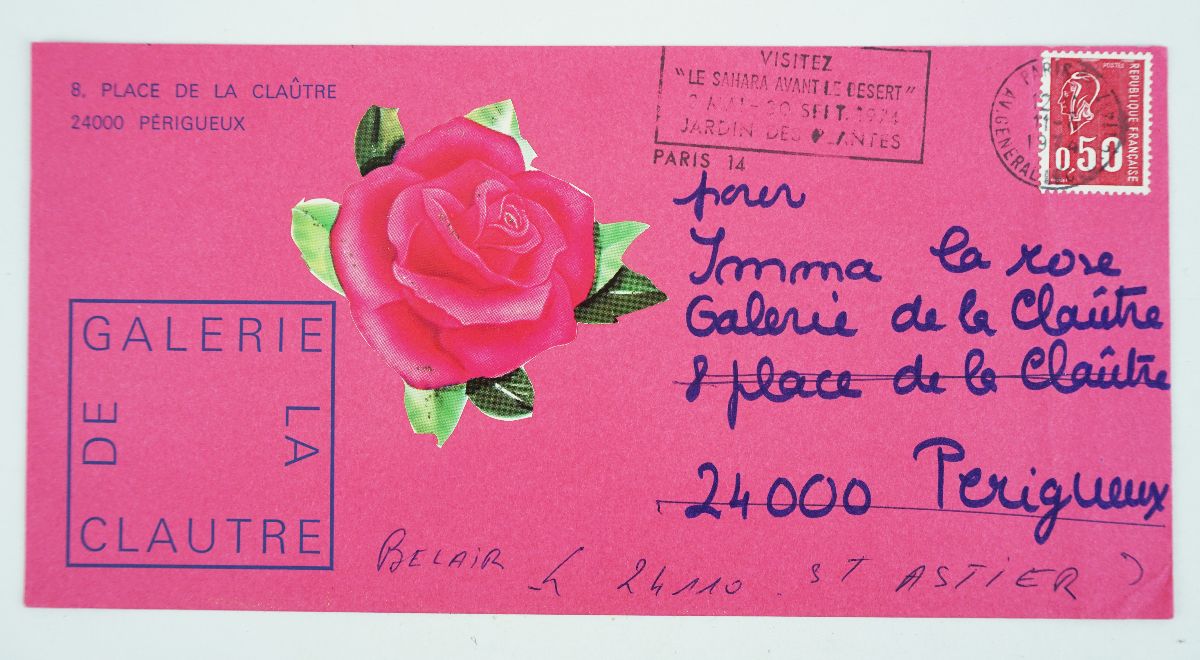 8, PLACE DE LA CLAÛTRE
24000 PÉRIGUEUX
VISITEZ
"LE SAHARA AVANT LE DESERT"
2 MAI - 30 SEPT. 1974
JARDIN DES PLANTES
PARIS 14
PARIS
AV. GENERAL
POSTES
REPUBLIQUE FRANÇAISE
0,50
pour
Imma la rose
Galerie de la Claûtre
8 place de la Claûtre
24000 Perigueux
GALERIE
DE LA
CLAUTRE
BELAIR
24110 ST ASTIER